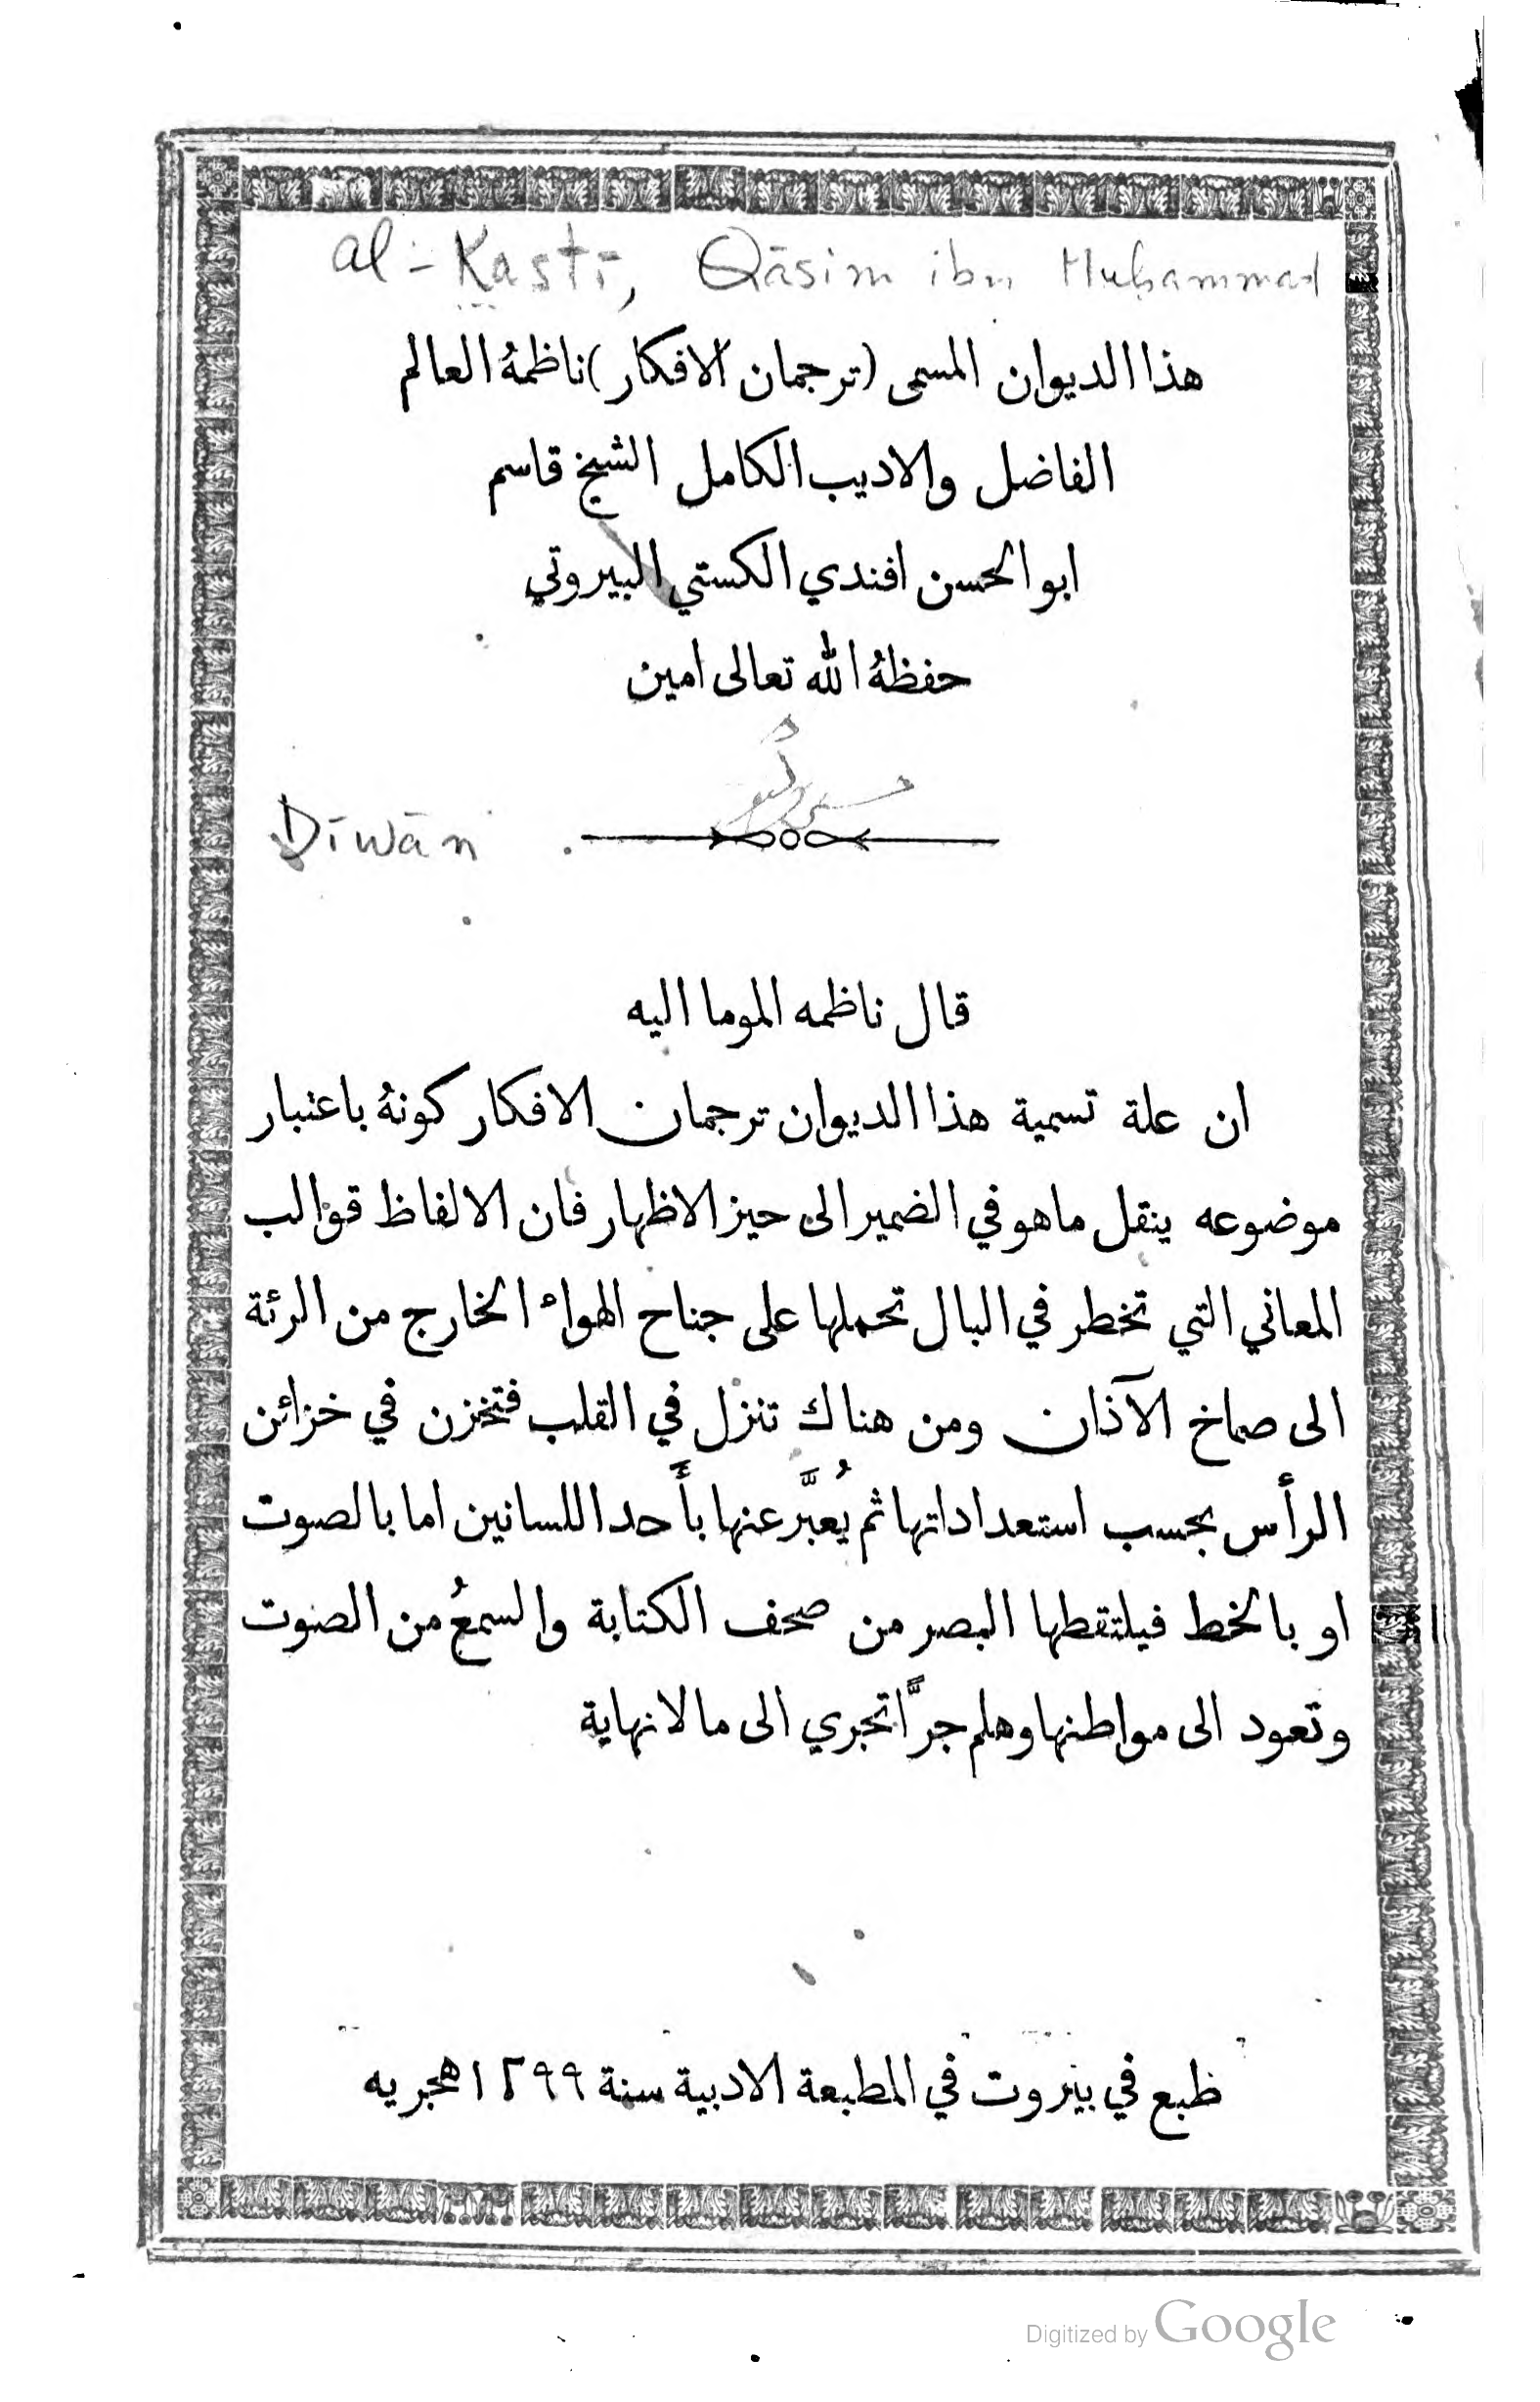 al-Kastī, Qāsim ibn Muḥammad
هذا الديوان المسمى (ترجمان الافكار) ناظمهُ العالم
الفاضل والاديب الكامل الشيخ قاسم
ابو الحسن افندي الكستي البيروتي
حفظهُ الله تعالى امين
Dīwān
قال ناظمه الموما اليه
ان علة تسمية هذا الديوان ترجمان الافكار كونهُ باعتبار
موضوعه ينقل ما هو في الضمير الى حيز الاظهار فان الالفاظ قوالب
المعاني التي تخطر في البال تحملها على جناح الهواء الخارج من الرئة
الى صماخ الآذان ومن هناك تنزل في القلب فتخزن في خزائن
الرأس بحسب استعداداتها ثم يُعبَّر عنها بأَحد اللسانين اما بالصوت
او بالخط فيلتقطها البصر من صحف الكتابة والسمعُ من الصوت
وتعود الى مواطنها وهلم جرًّا تجري الى ما لا نهاية
طبع في بيروت في المطبعة الادبية سنة ١٢٩٩ هجريه
Digitized by Google